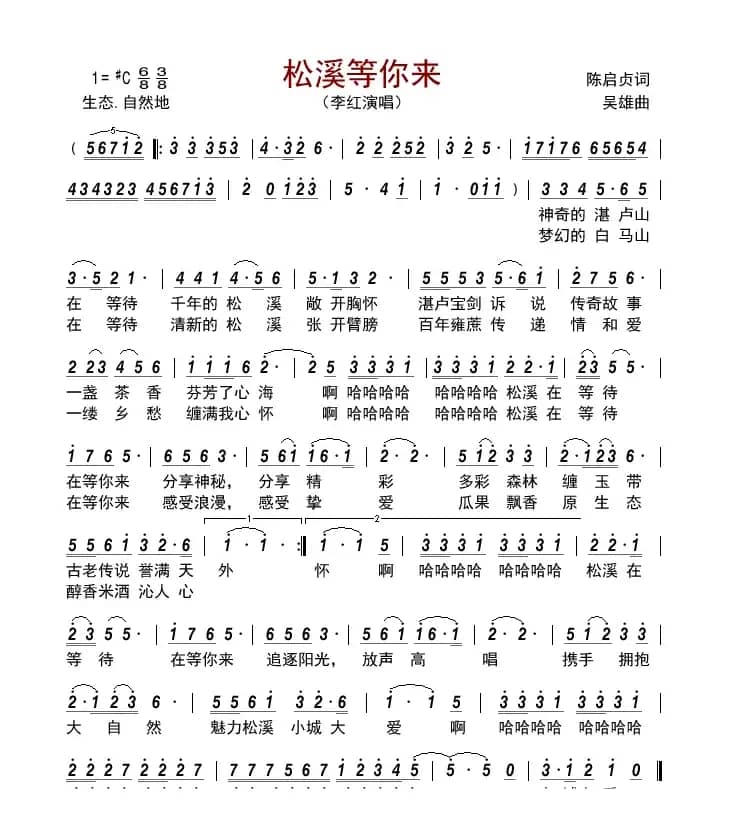 1=♯C 6/8 3/8
松溪等你来
陈启贞词
生态.自然地
（李红演唱）
吴雄曲
5
( 5 6 7 1 2 |: 3 3 3 5 3 | 4· 3 2 6· | 2 2 2 5 2 | 3 2 5· | 1 7 1 7 6 6 5 6 5 4 |
4 3 4 3 2 3 4 5 6 7 1 3 | 2 0 1 2 3 | 5· 4 1 | 1· 0 1 1 ) | 3 3 4 5· 6 5 |
神奇的 湛 卢山
梦幻的 白 马山
3· 5 2 1· | 4 4 1 4· 5 6 | 5· 1 3 2· | 5 5 5 3 5· 6 1 | 2 7 5 6· |
在 等待 千年的 松 溪 敞 开胸怀 湛卢宝剑 诉 说 传奇故 事
在 等待 清新的 松 溪 张 开臂膀 百年雍蔗 传 递 情 和 爱
2 2 3 4 5 6 | 1 1 1 6 2· | 2 5 3 3 3 3 | 3 3 3 3 2 2· 1 | 2 3 5 5· |
一盏 茶 香 芬芳了心 海 啊 哈哈哈哈 哈哈哈哈 松溪 在 等待
一缕 乡 愁 缠满我心 怀 啊 哈哈哈哈 哈哈哈哈 松溪 在 等待
1 7 6 5· | 6 5 6 3· | 5 6 1 1 6· 1 | 2· 2· | 5 1 2 3 3 | 2· 1 2 3 6· |
在等你来 分享神秘， 分享 精 彩 多彩 森林 缠 玉 带
在等你来 感受浪漫， 感受 挚 爱 瓜果 飘香 原 生 态
1
2
5 5 6 1 3 2· 6 | 1· 1· :| 1· 1 5 | 3 3 3 3 3 3 3 1 | 2 2· 1 |
古老传说 誉满 天 外 怀 啊 哈哈哈哈 哈哈哈哈 松溪 在
醇香米酒 沁人 心
2 3 5 5· | 1 7 6 5· | 6 5 6 3· | 5 6 1 1 6· 1 | 2· 2· | 5 1 2 3 3 |
等 待 在等你来 追逐阳光， 放声 高 唱 携手 拥抱
2· 1 2 3 6· | 5 5 6 1 3 2· 6 | 1· 1 5 | 3 3 3 3 3 3 3 1 |
大 自 然 魅力松溪 小城 大 爱 啊 哈哈哈哈 哈哈哈哈
2 2 2 7 2 2 2 7 | 7 7 7 5 6 7 1 2 3 4 | 5· 5· | 5· 5 0 | 3· 1 2 1 0 ‖